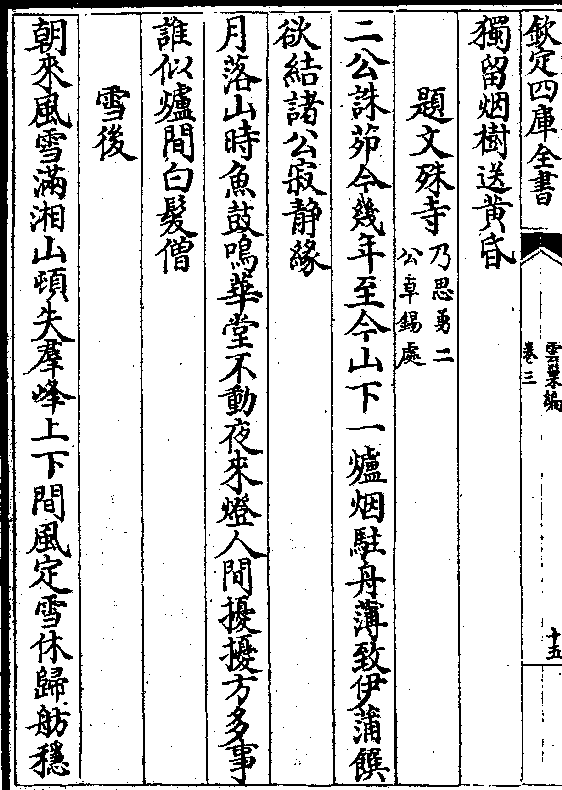 欽定四庫全書
雲巢編
卷三
十五
獨留烟樹送黃昏
題文殊寺
乃思勇二
公卓錫處
二公誅茆今幾年至今山下一爐烟駐舟薄致伊蒲饌
欲結諸公寂静緣
月落山時魚鼓鳴華堂不動夜來燈人間擾擾方多事
誰似爐間白髮僧
雪後
朝來風雪滿湘山頓失羣峰上下間風定雪休歸舫穩